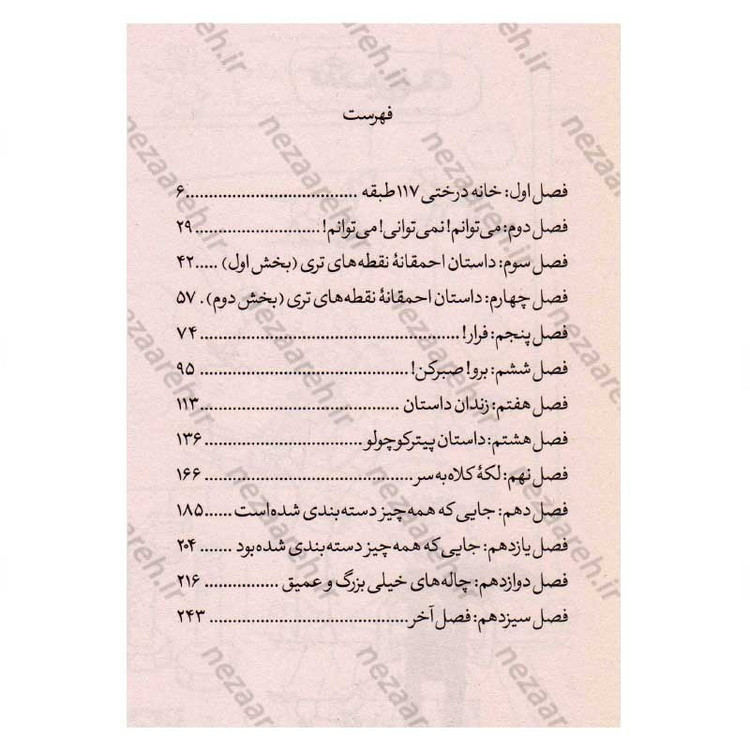 فهرست
فصل اول: خانه درختی ۱۱۷ طبقه ....................................۶
فصل دوم: می‌توانم! نمی‌توانی! می‌توانم! ..........................۲۹
فصل سوم: داستان احمقانهٔ نقطه‌های تری (بخش اول) .....۴۲
فصل چهارم: داستان احمقانهٔ نقطه‌های تری (بخش دوم). ۵۷
فصل پنجم: فرار! ......................................................۷۴
فصل ششم: برو! صبرکن! ..........................................۹۵
فصل هفتم: زندان داستان ..........................................۱۱۳
فصل هشتم: داستان پیتر کوچولو .................................۱۳۶
فصل نهم: لکهٔ کلاه به سر ...........................................۱۶۶
فصل دهم: جایی که همه چیز دسته‌بندی شده است ......۱۸۵
فصل یازدهم: جایی که همه چیز دسته‌بندی شده بود .......۲۰۴
فصل دوازدهم: چاله‌های خیلی بزرگ و عمیق ................۲۱۶
فصل سیزدهم: فصل آخر..........................................۲۴۳
nezaareh.ir